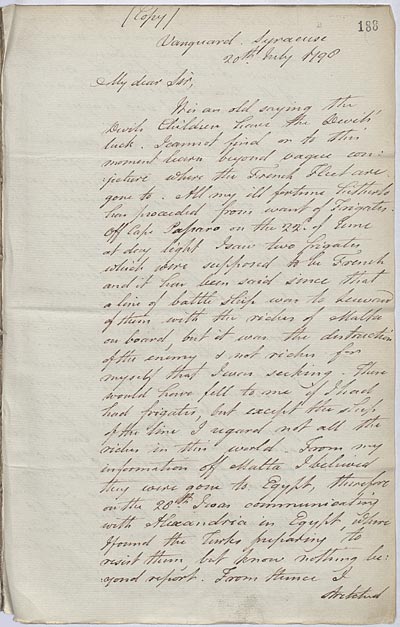 (Copy)
188
Vanguard. Syracuse
20th July 1798
My dear Sir,
It is an old saying the
Devils Children have the Devils'
luck. I cannot find or to this
moment learn beyond vague con-
jecture where the French Fleet are
gone to. All my ill fortune hitherto
has proceeded from want of Frigates.
Off Cape Passaro on the 22d. of June
at day light I saw two frigates
which were supposed to be French
and it has been said since that
a line of battle Ship was to leeward
of them with the riches of Malta
on board, but it was the destruction
of the enemy & not riches for
myself that I was seeking. These
would have fell to me if I had
had frigates, but except the ship
of the line I regard not all the
riches in this world. From my
information off Malta I believed
they were gone to Egypt, therefore
on the 28th I was communicating
with Alexandria in Egypt where
I found the Turks preparing to
resist them but know nothing be-
yond report. From thence I
stretched